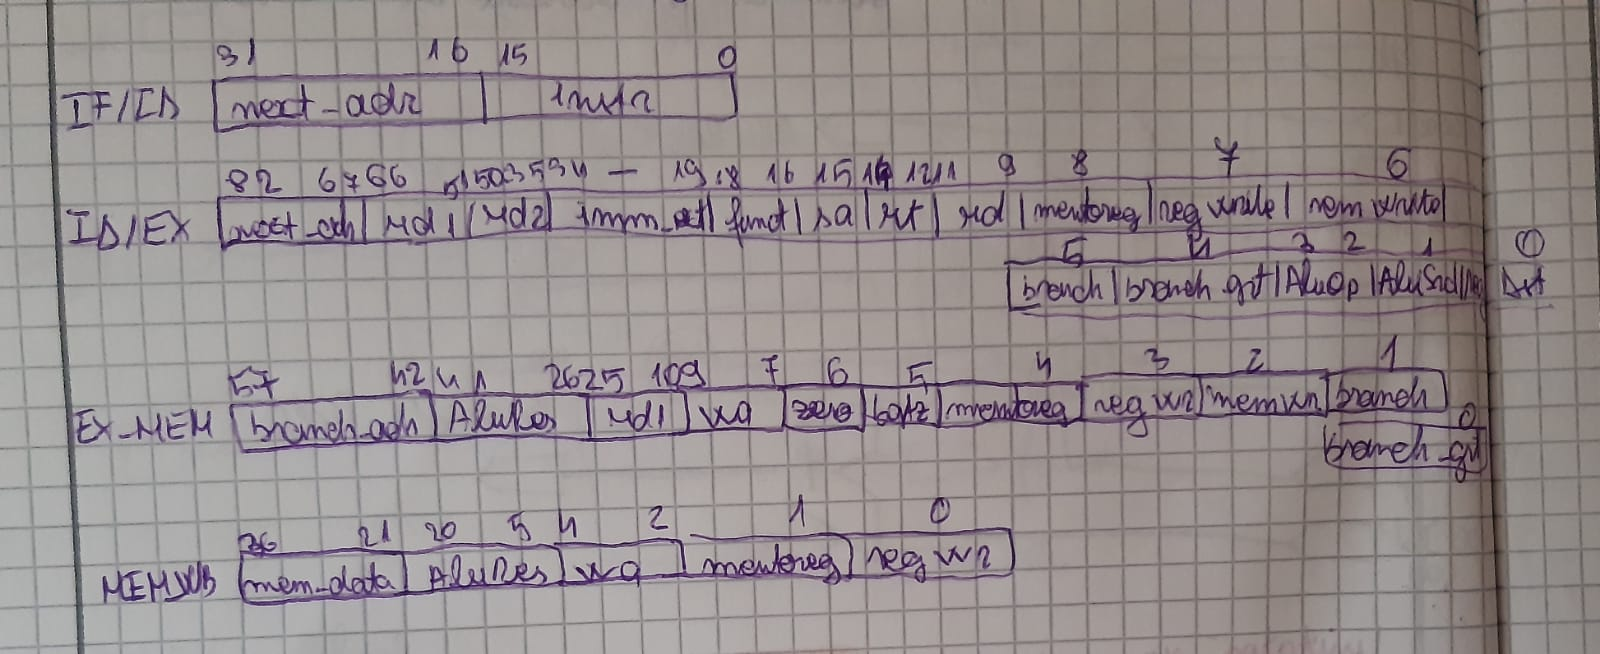 31 16 15 0
IF/ID next_adr instr
82 67 66 51 50 35 34 — 19 18 16 15 14 12 11 9 8 7 6
ID/EX next_adr rd1 rd2 imm_ext funct sa rt rd memtoreg reg write mem write
5 4 3 2 1 0
branch branch_gt AluOp AluSrc Reg Dst
57 42 41 26 25 10 9 7 6 5 4 3 2 1
EX-MEM branch_adr AluRes rd1 wa zero memtoreg reg wr mem wr branch
0
branch_gt
36 21 20 5 4 2 1 0
MEM/WB mem_data AluRes wa memtoreg reg wr